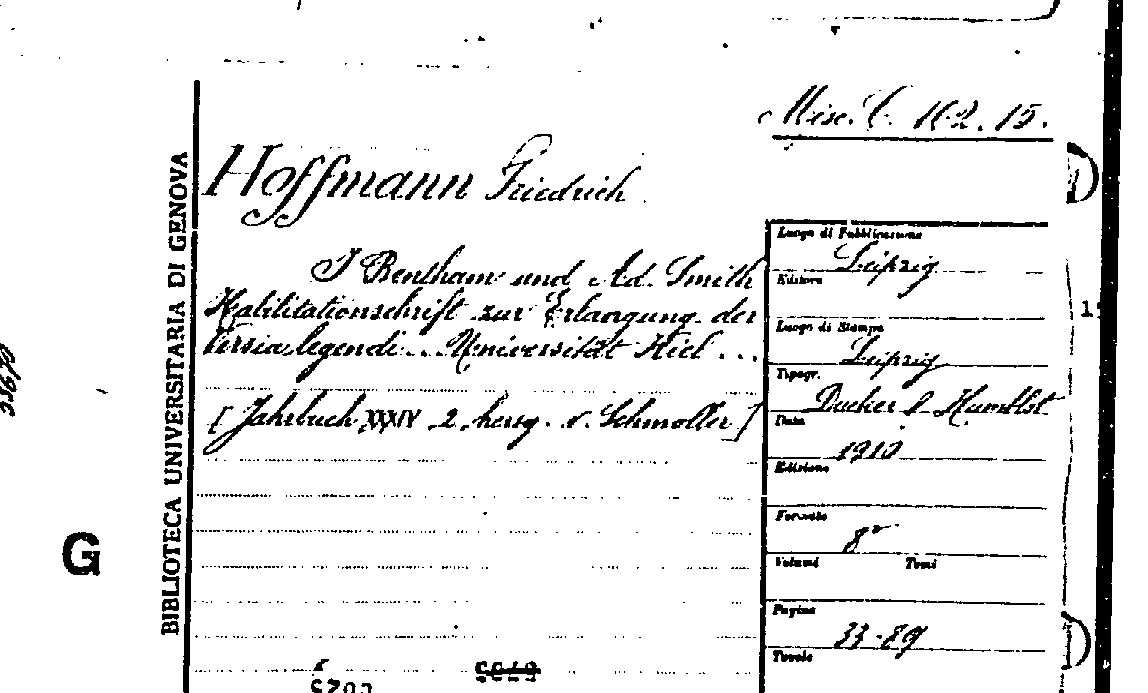 Misc. C. 162. 15.
BIBLIOTECA UNIVERSITARIA DI GENOVA
Hoffmann Friedrich
J Bentham und Ad. Smith
Habilitationschrift zur Erlangung der
legendi... Universität Kiel ...
[Jahrbuch XXXIV, 2, hersg. v. Schmoller]
Luogo di Pubblicazione
Leipzig
Editore
Luogo di Stampa
Leipzig
Tipogr.
Ducker & Humblot
Data
1910
Edizione
Formato
8°
Volumi Tomi
Pagine
33-89
Tavole
G